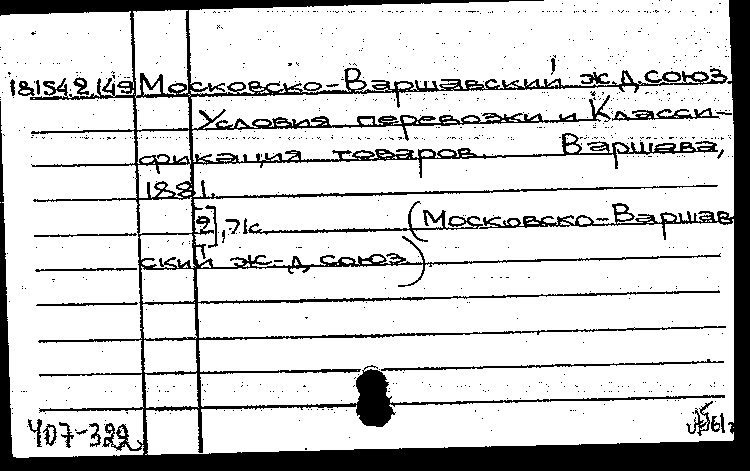 18.154.2.149 Московско-Варшавский ж.д. союз.
Условия перевозки и Класси-
фикация товаров. Варшава,
1881.
[2], 71с. (Московско-Варшав
ский ж-д, союз)
407-322